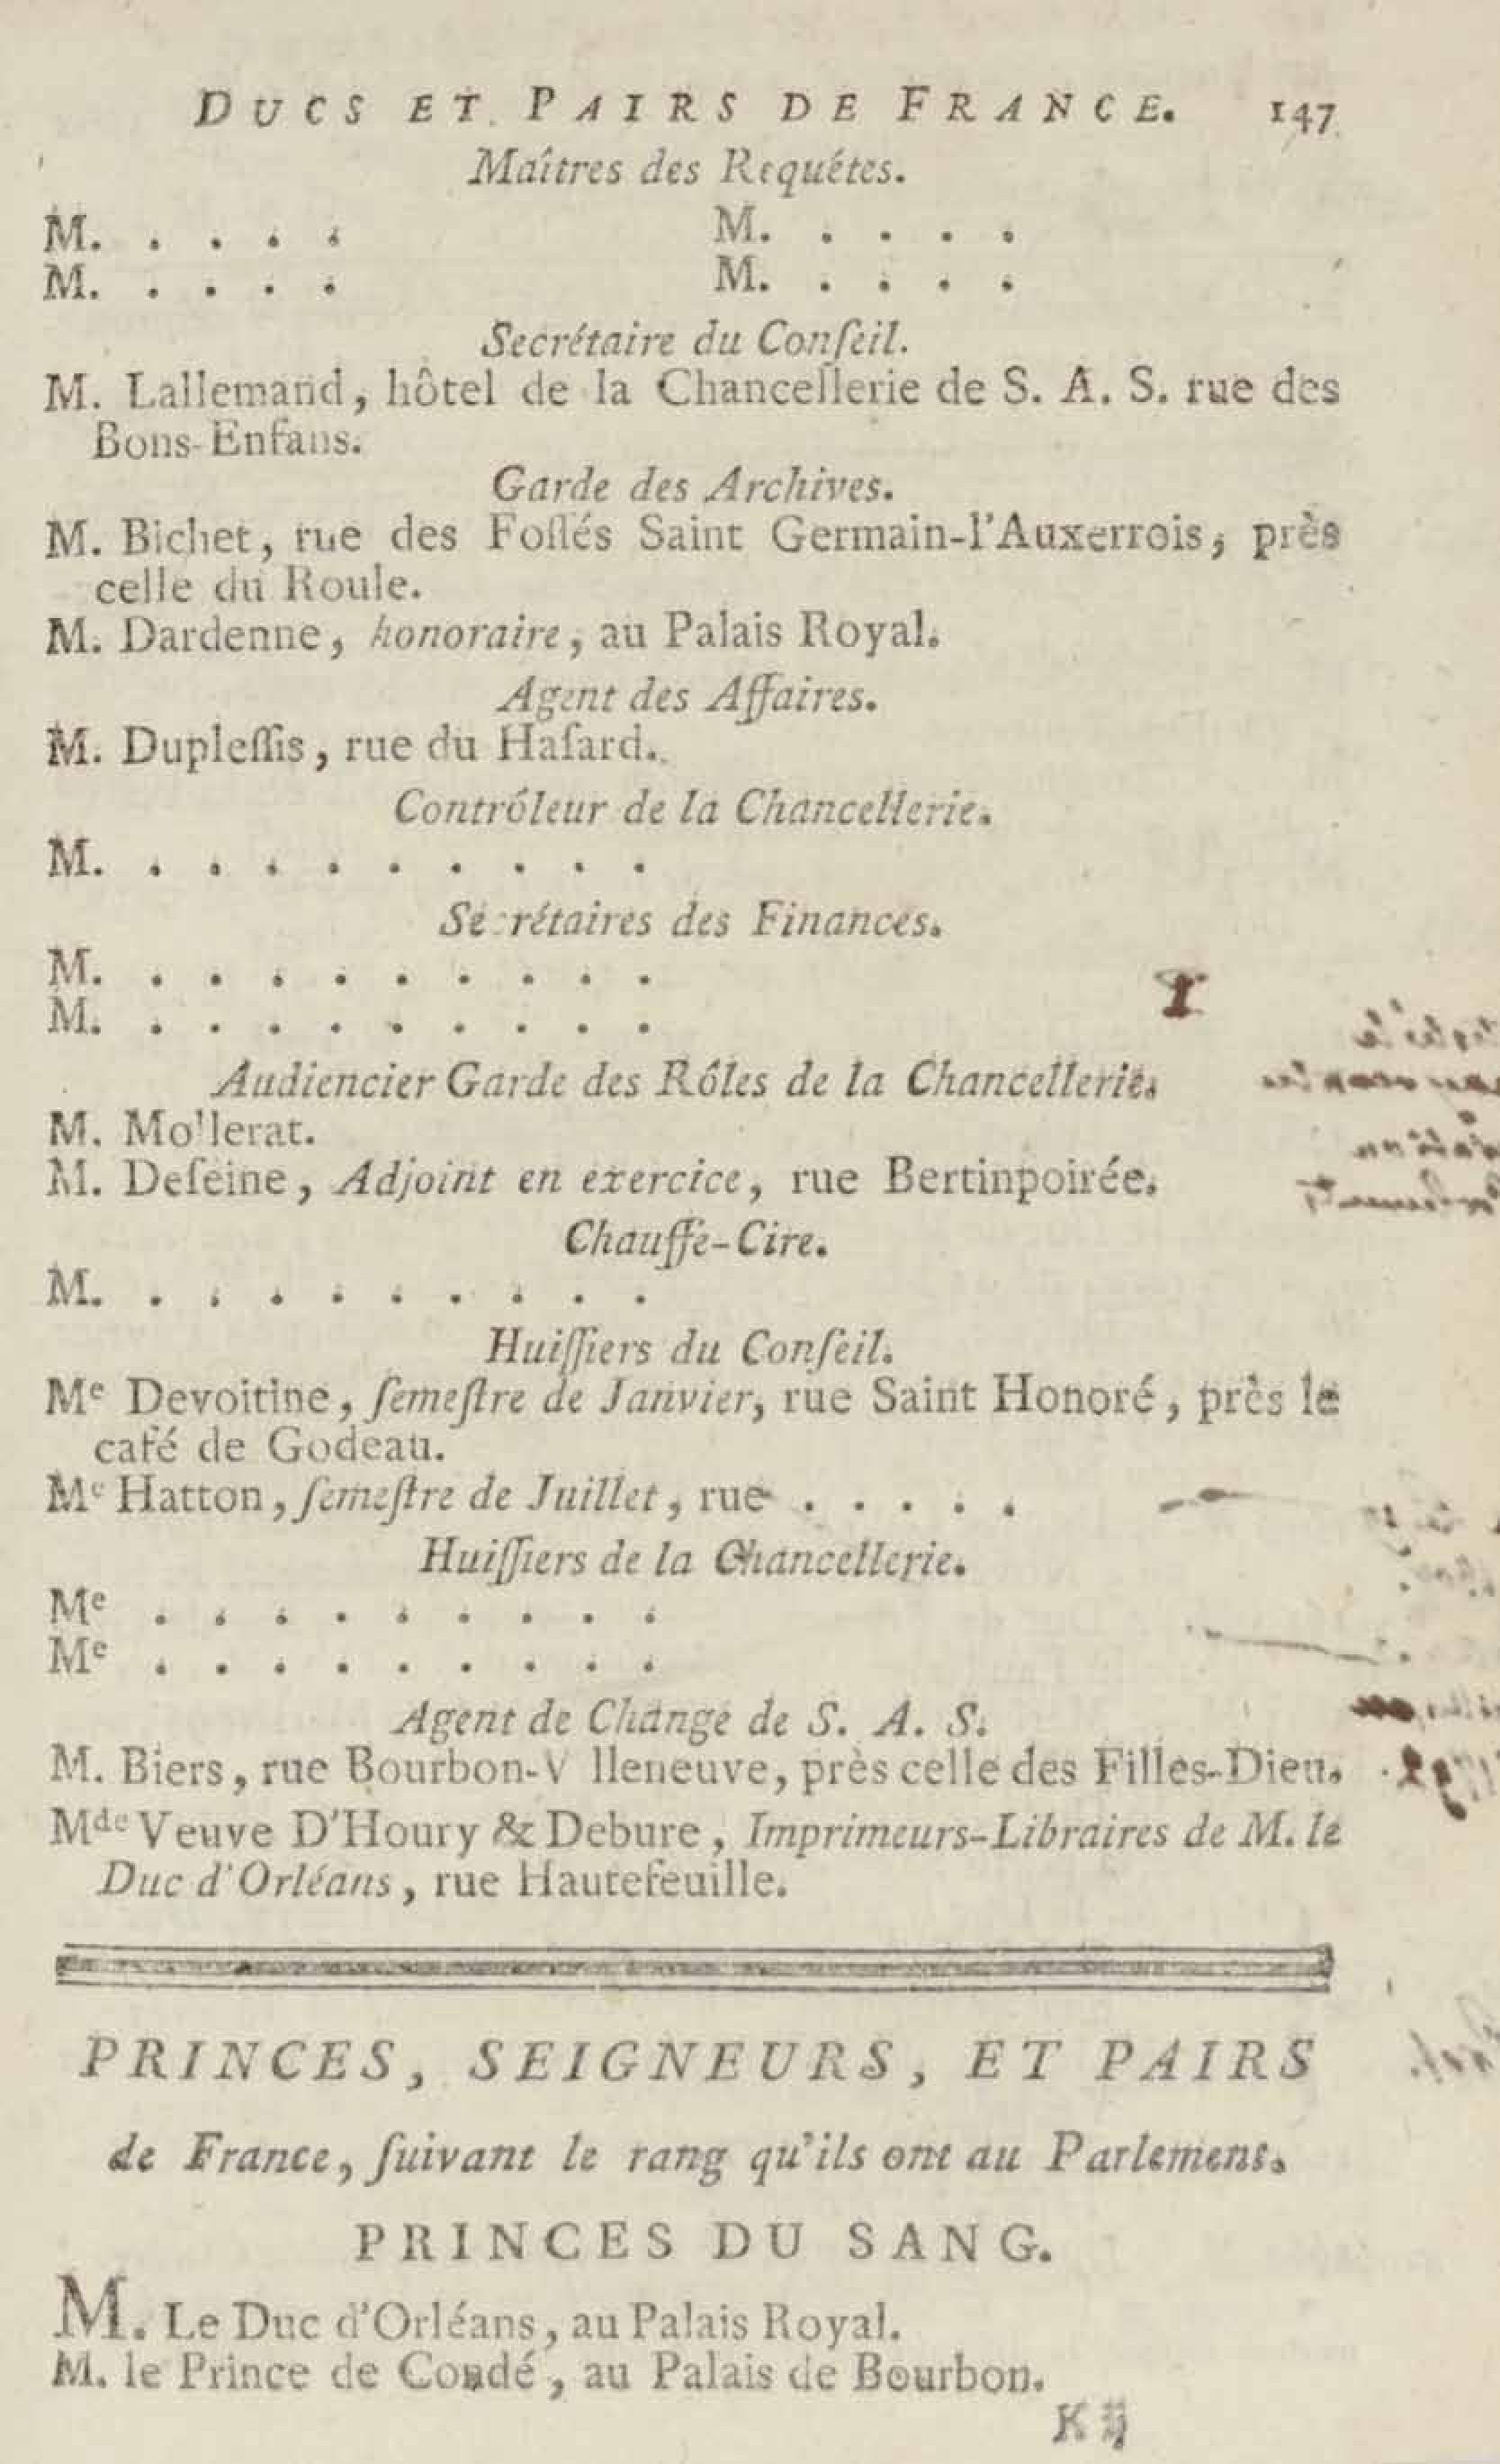 DUCS ET PAIRS DE FRANCE. 147
Maîtres des Requêtes.
M. . . . . M. . . . .
M. . . . . M. . . . .
Secrétaire du Conſeil.
M. Lallemand, hôtel de la Chancellerie de S. A. S. rue des
Bons-Enfans.
Garde des Archives.
M. Bichet, rue des Foſſés Saint Germain-l'Auxerrois, près
celle du Roule.
M. Dardenne, honoraire, au Palais Royal.
Agent des Affaires.
M. Dupleſſis, rue du Haſard.
Contrôleur de la Chancellerie.
M. . . . . . . . . .
Se rétaires des Finances.
M. . . . . . . . . .
M. . . . . . . . . .
Audiencier Garde des Rôles de la Chancellerie.
M. Mollerat.
M. Deſeine, Adjoint en exercice, rue Bertinpoirée.
Chauffe-Cire.
M. . . . . . . . . .
Huiſſiers du Conſeil.
Me Devoitine, ſemeſtre de Janvier, rue Saint Honoré, près le
café de Godeau.
Me Hatton, ſemeſtre de Juillet, rue . . . . .
Huiſſiers de la Chancellerie.
Me . . . . . . . . .
Me . . . . . . . . .
Agent de Change de S. A. S.
M. Biers, rue Bourbon-V lleneuve, près celle des Filles-Dieu.
Mde Veuve D'Houry & Debure, Imprimeurs-Libraires de M. le
Duc d'Orléans, rue Hautefeuille.
PRINCES, SEIGNEURS, ET PAIRS
de France, ſuivant le rang qu'ils ont au Parlement.
PRINCES DU SANG.
M. Le Duc d'Orléans, au Palais Royal.
M. le Prince de Condé, au Palais de Bourbon.
K ij